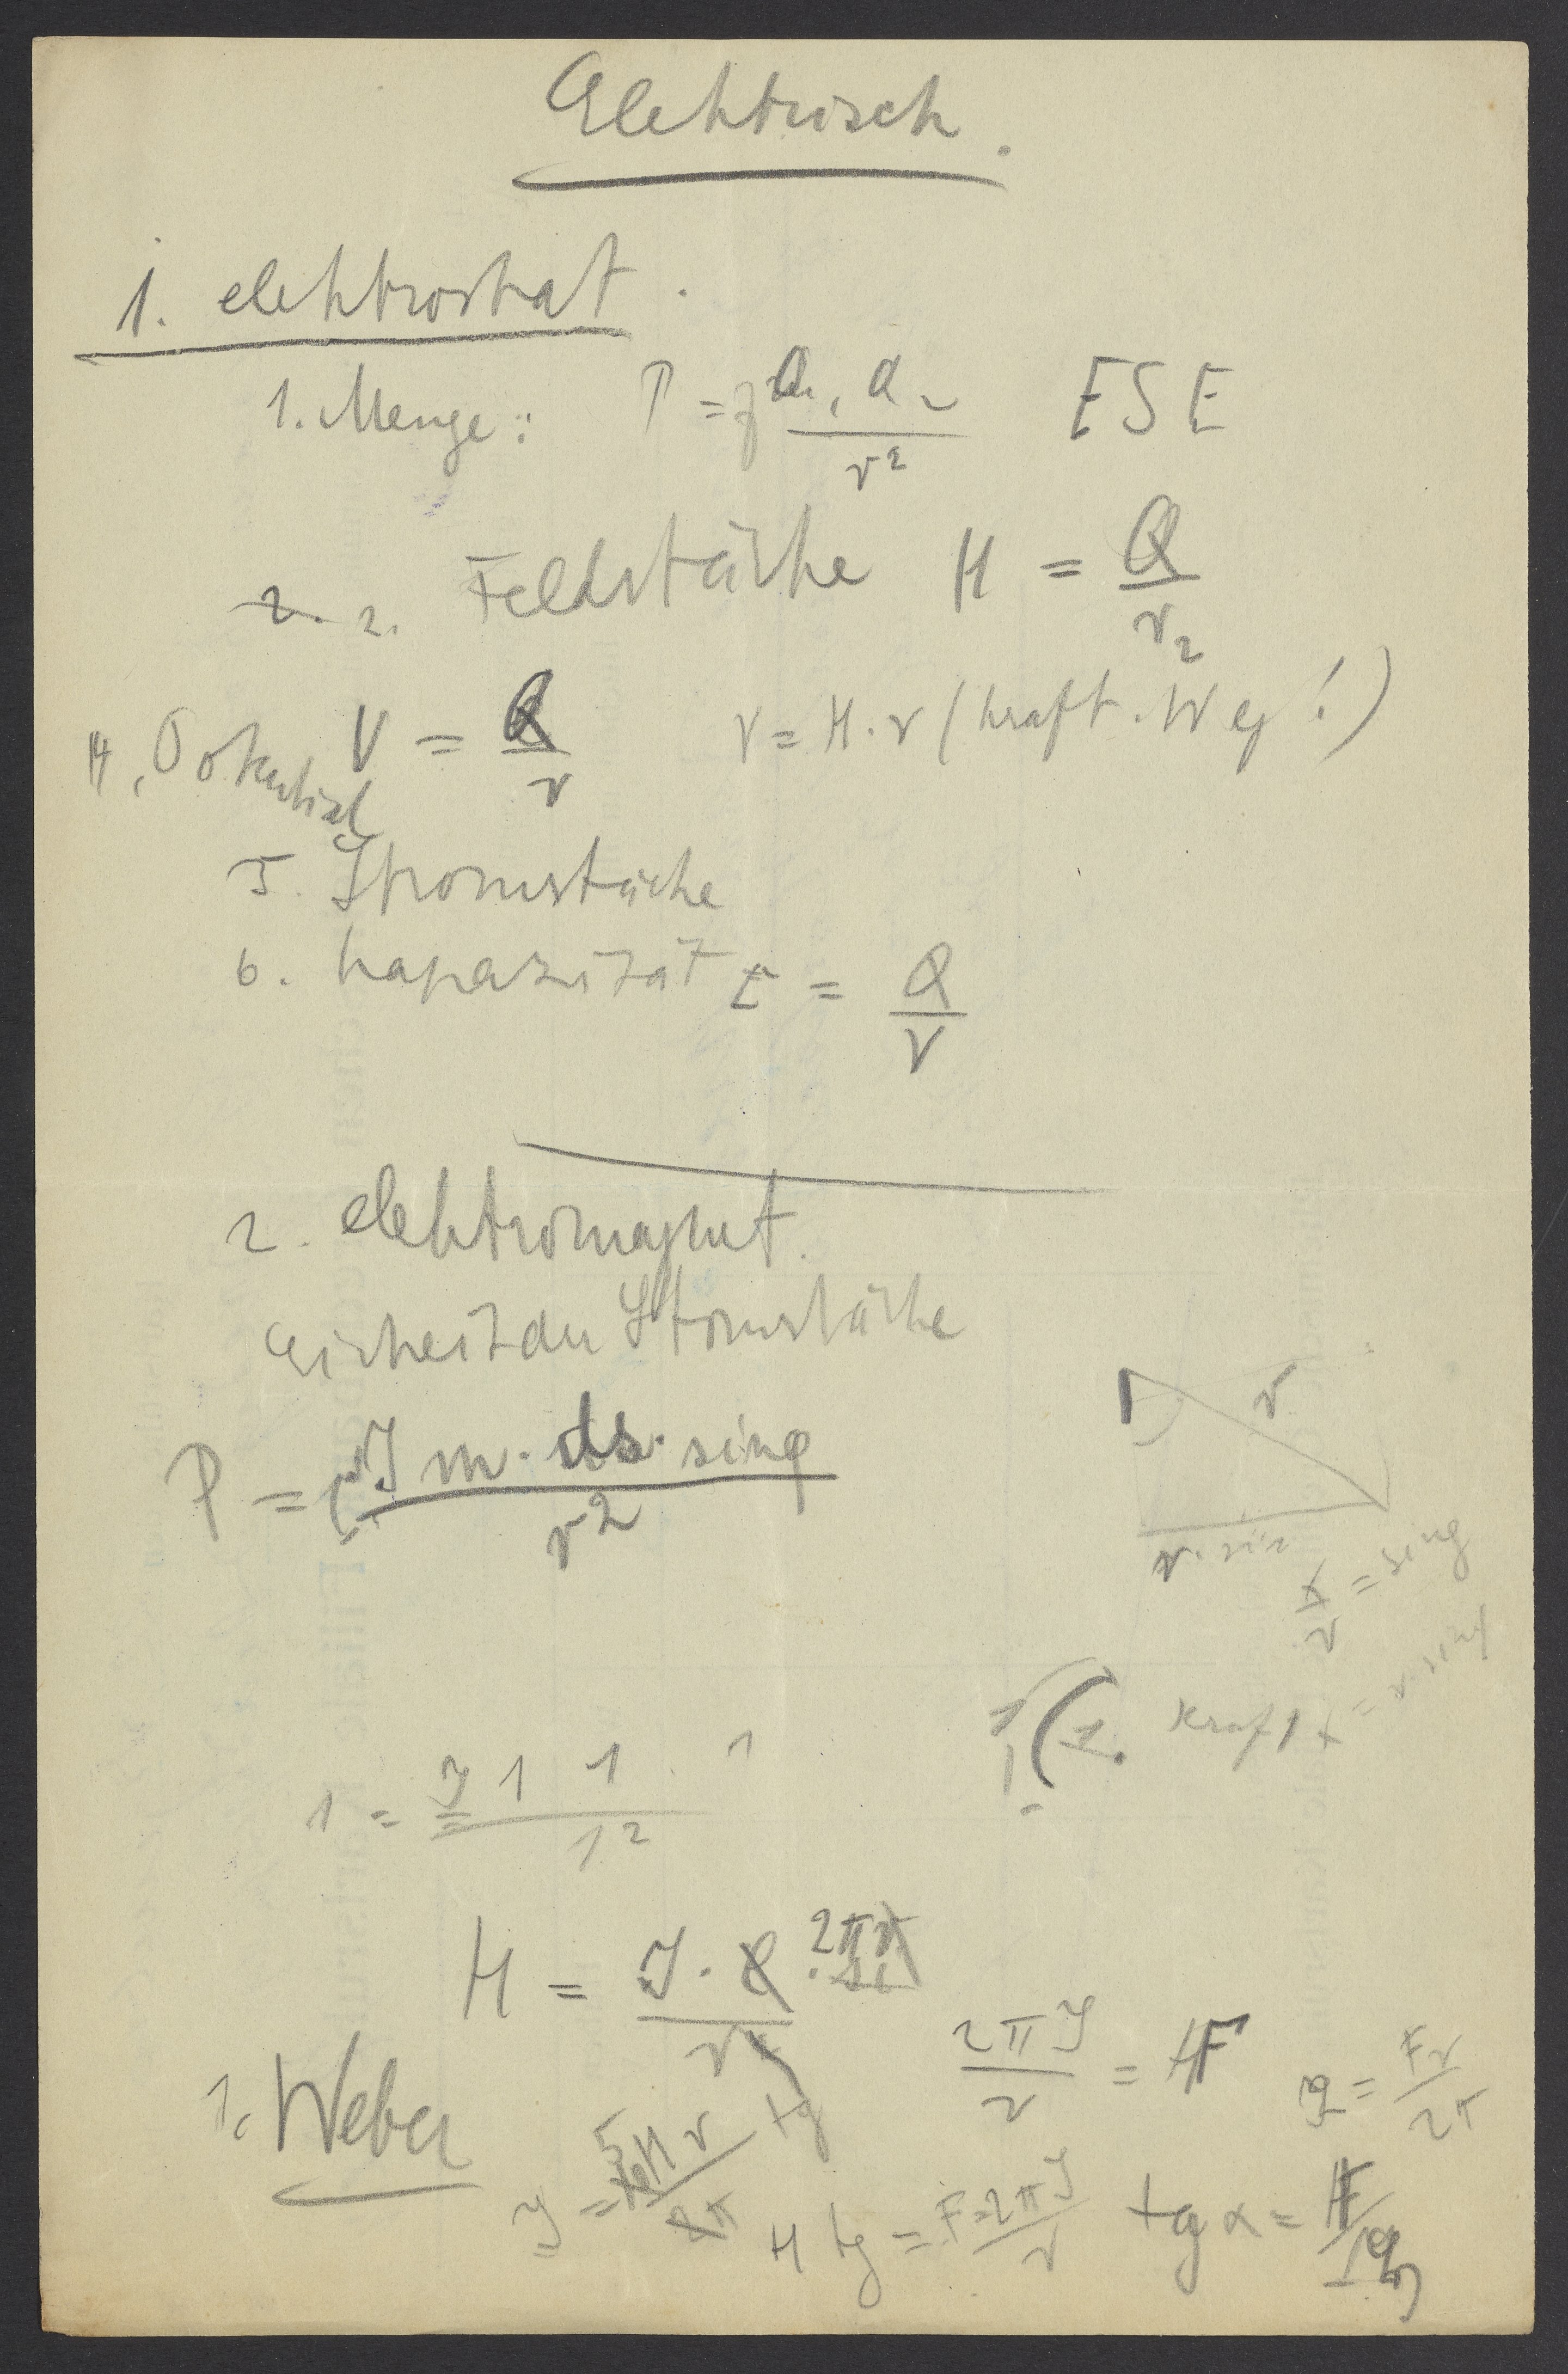 Elektrisch.
1. elektrostat.
1. Menge: P = f Q₁ . Q₂ / r² ESE
2. Feldstärke H = Q / r₂
4. Potential V = Q / r V = H . r (Kraft . Weg!)
5. Stromstärke
6. Kapazität C = Q / V
2. elektromagnet.
Einheit der Stromstärke
P = J m . ds . sin φ / r²
r
r . sin
x / r = sin φ
x = r . sin φ
Kraft
1 = J 1 1 1 / 1²
H = J . 2πr / r
2πJ / r = F
J = Fr / 2π
1. Weber
J = H r / 2π tg
H tg = F = 2πJ / r
tg α = F / H